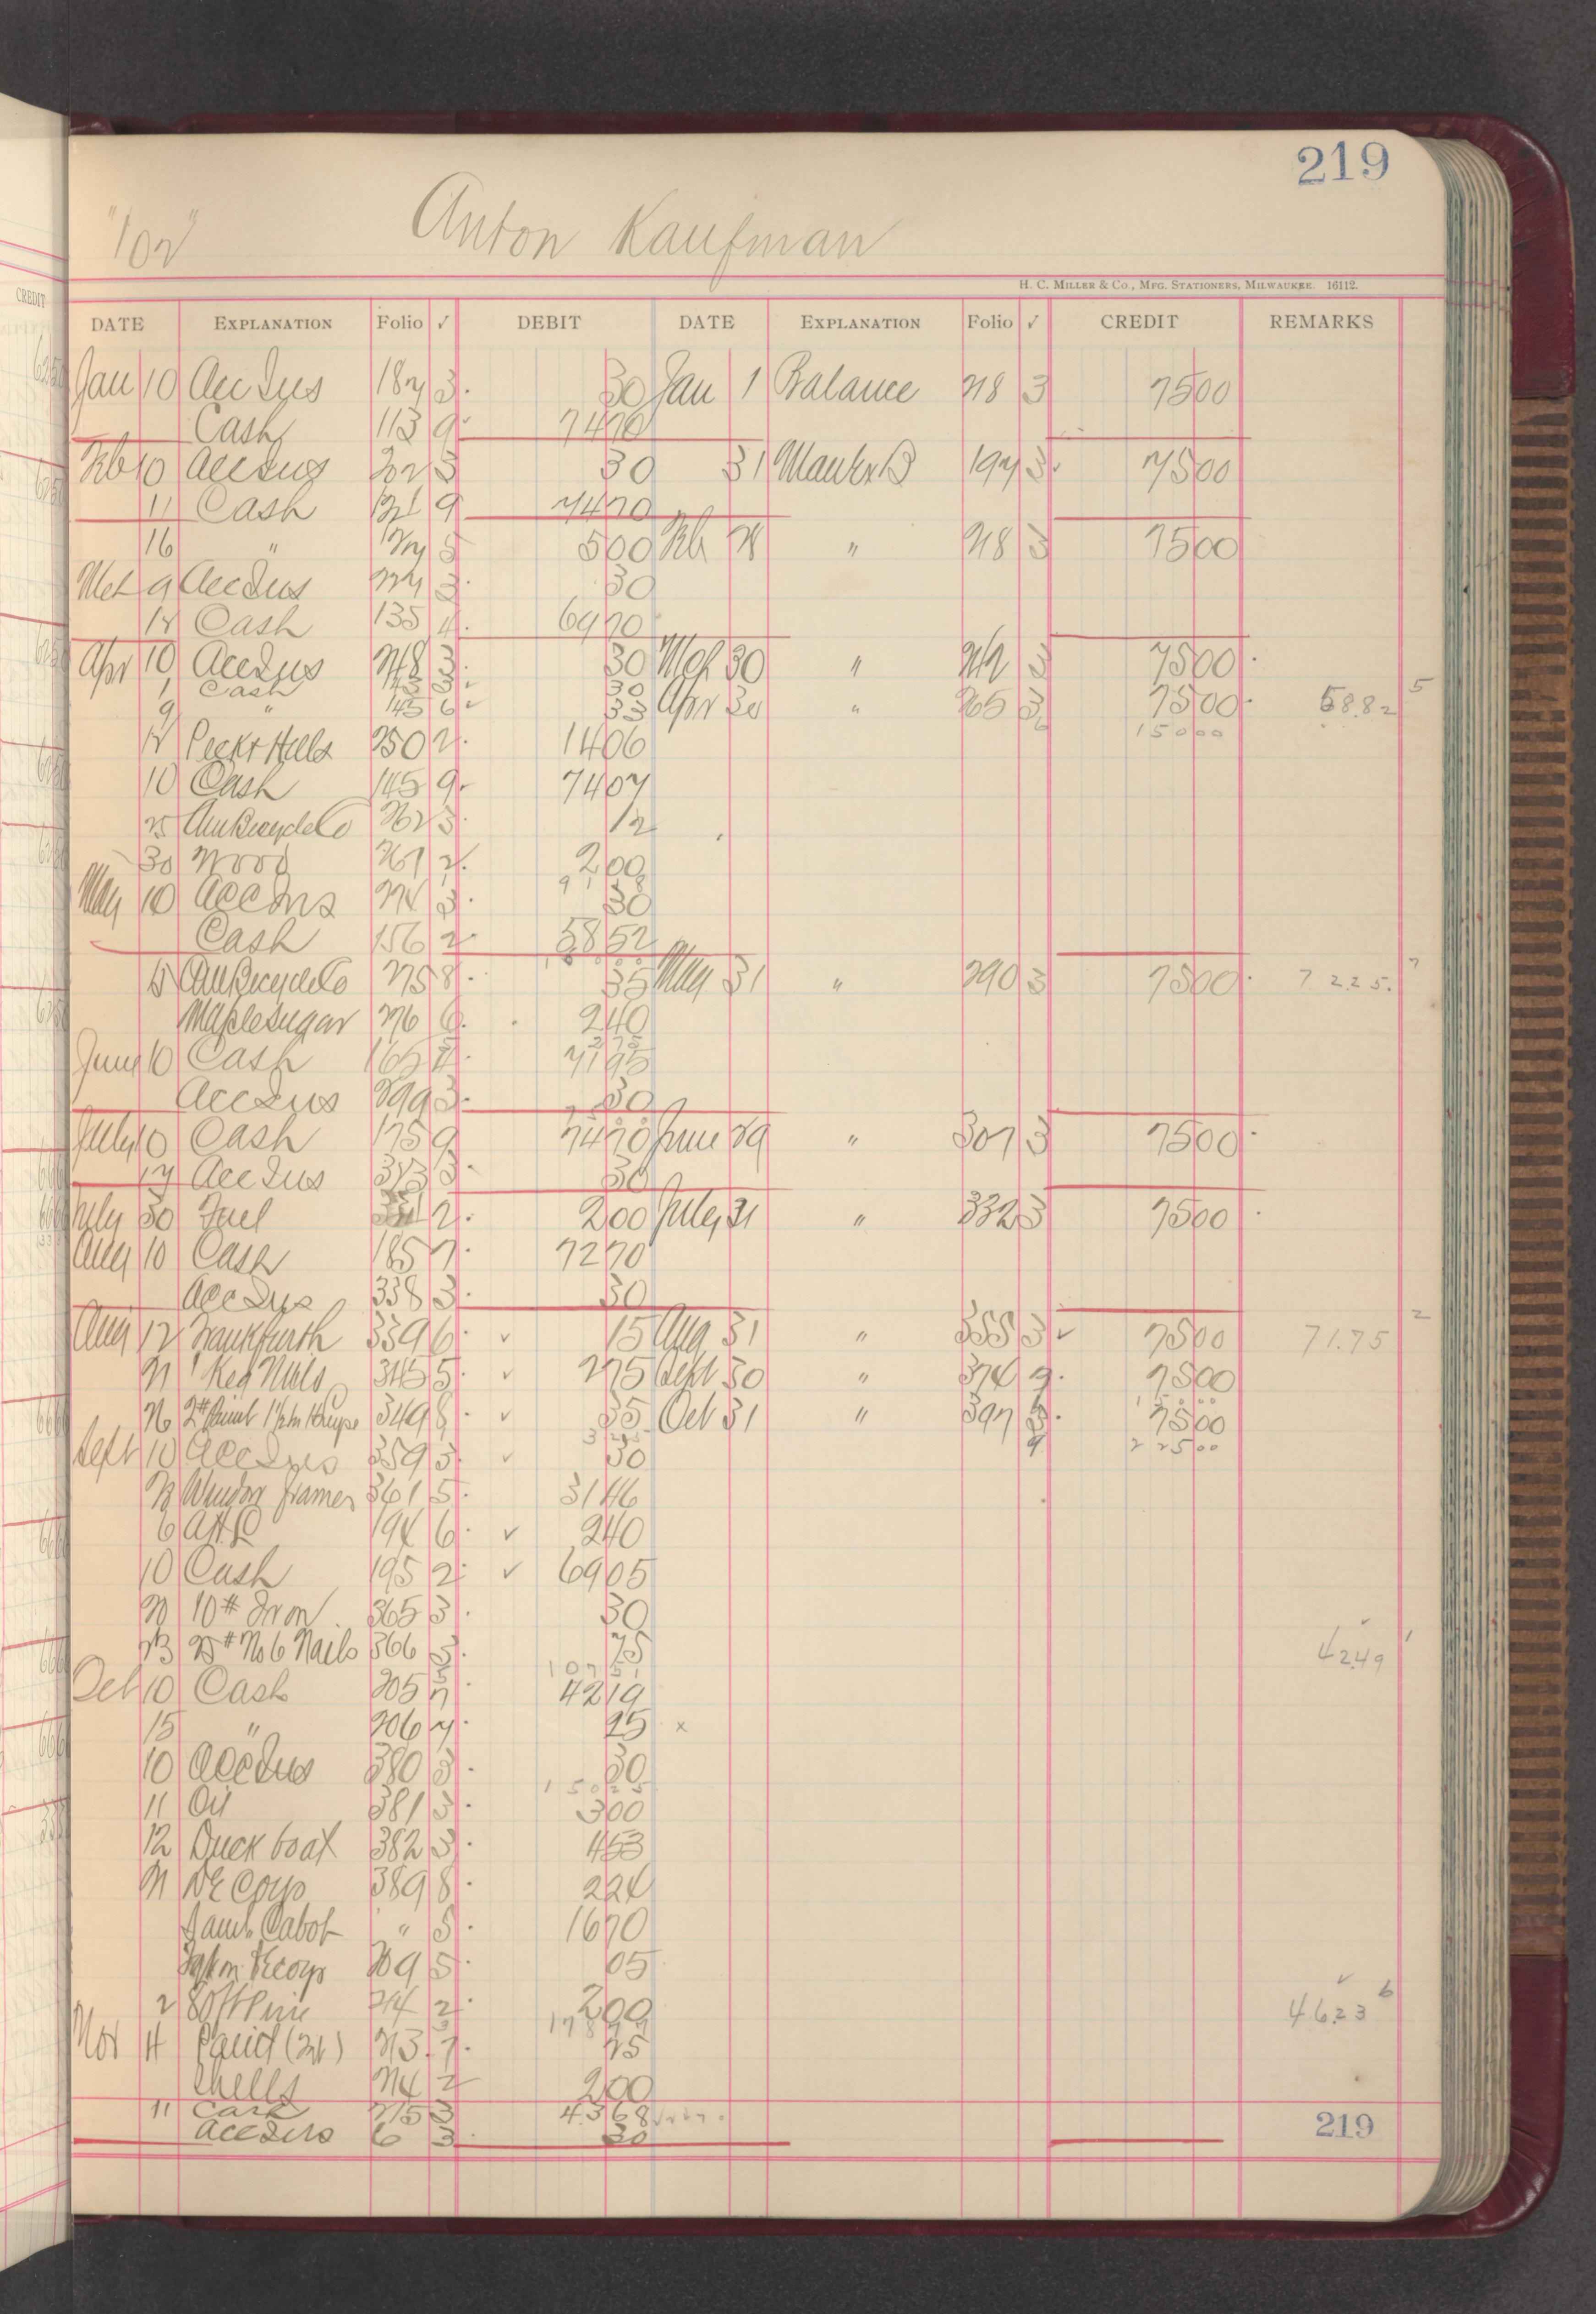 219
"102"
Anton Kaufman
H. C. Miller & Co., Mfg. Stationers, Milwaukee. 16112.
CREDIT
DATE Explanation Folio ✓ DEBIT DATE Explanation Folio ✓ CREDIT REMARKS
Jan 10 Acc Ins 187 3 30 Jan 1 Balance 218 3 7500
Cash 113 9 7470
Feb 10 Acc Ins 202 3 30 31 197 3 7500
11 Cash 121 9 7470
16 " 5 500 Feb 28 " 218 3 7500
Mch 9 Acc Ins 3 30
12 Cash 135 4 6970
Apr 10 Acc Ins 248 3 30 Mch 30 " 242 3 7500
1 Cash 143 3 30
9 " 145 6 33 Apr 30 " 265 3 7500 58.82 5
15000
12 Peck & Hills 250 2 1406
10 Cash 145 9 7407
25 Am Bicycle Co 262 3 12
30 Wood 267 2 200
May 10 Acc Ins 274 3 30
Cash 156 2 5852
15 Am Bicycle Co 275 8 35 May 31 " 290 3 7500 72.25 7
Maple Sugar 276 6 240
June 10 Cash 165 7195
Acc Ins 299 3 30
July 10 Cash 175 9 7470 June 29 " 307 3 7500
17 Acc Ins 313 3 30
July 30 Fuel 2 200 July 31 " 332 3 7500
Aug 10 Cash 185 7 7270
Acc Ins 338 3 30
Aug 12 Frankfurth 339 6 ✓ 15 Aug 31 " 355 3 ✓ 7500 71.75 2
21 1 Keg Nails 345 5 ✓ 275 Sept 30 " 374 9 7500
26 349 8 ✓ 35 Oct 31 " 397 3 7500
22500
Sept 10 Acc Ins 359 3 ✓ 30
Window frames 361 5 3146
6 194 6 ✓ 240
10 Cash 195 2 ✓ 6905
20 10# Iron 365 3 30
23 25# No 6 Nails 366 3 75 42.49 1
Oct 10 Cash 205 7 4219
15 " 206 7 25 x
10 Acc Ins 380 3 30
11 Oil 381 3 300
12 Duck boat 382 3 453
21 Decoys 389 8 224
Saml. Cabot " 8 1670
Decoys 209 5 05
2 Soft Pine 214 2 200 46.23 6
Nov 4 Paid 213 7 25
Shells 214 2 200
11 Cash 215 3 4368
Acc Ins 6 3 30
219